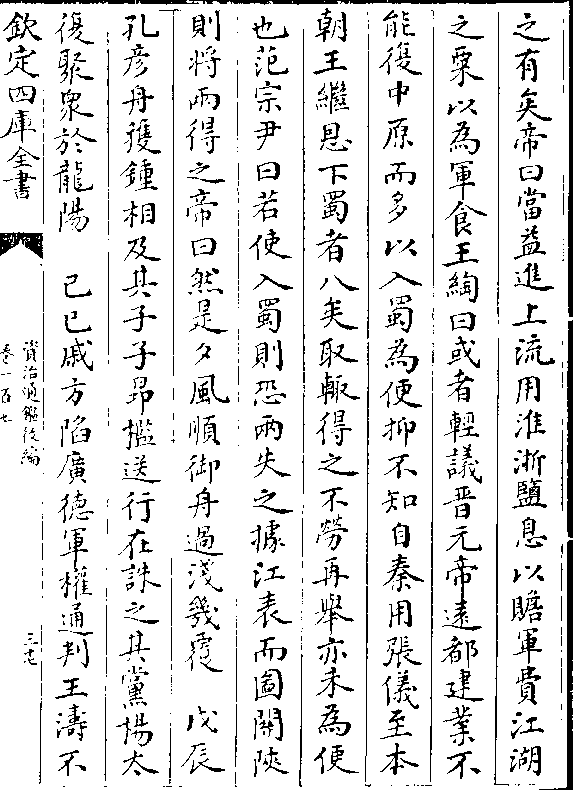 之有矣帝曰當益進上流用淮浙鹽息以贍軍費江湖
之粟以為軍食王綯曰或者輕議晉元帝遠都建業不
能復中原而多以入蜀為便抑不知自秦用張儀至本
朝王繼恩下蜀者八矣取輙得之不勞再舉亦未為便
也范宗尹曰若使入蜀則恐兩失之據江表而圖關陜
則將兩得之帝曰然是夕風順御舟過淺幾覆　戊辰
孔彦舟獲鍾相及其子子昻檻送行在誅之其黨楊太
復聚衆於龍陽　己巳戚方陷廣德軍權通判王濤不
欽定四庫全書
資治通鑑後編
卷一百七
三十七